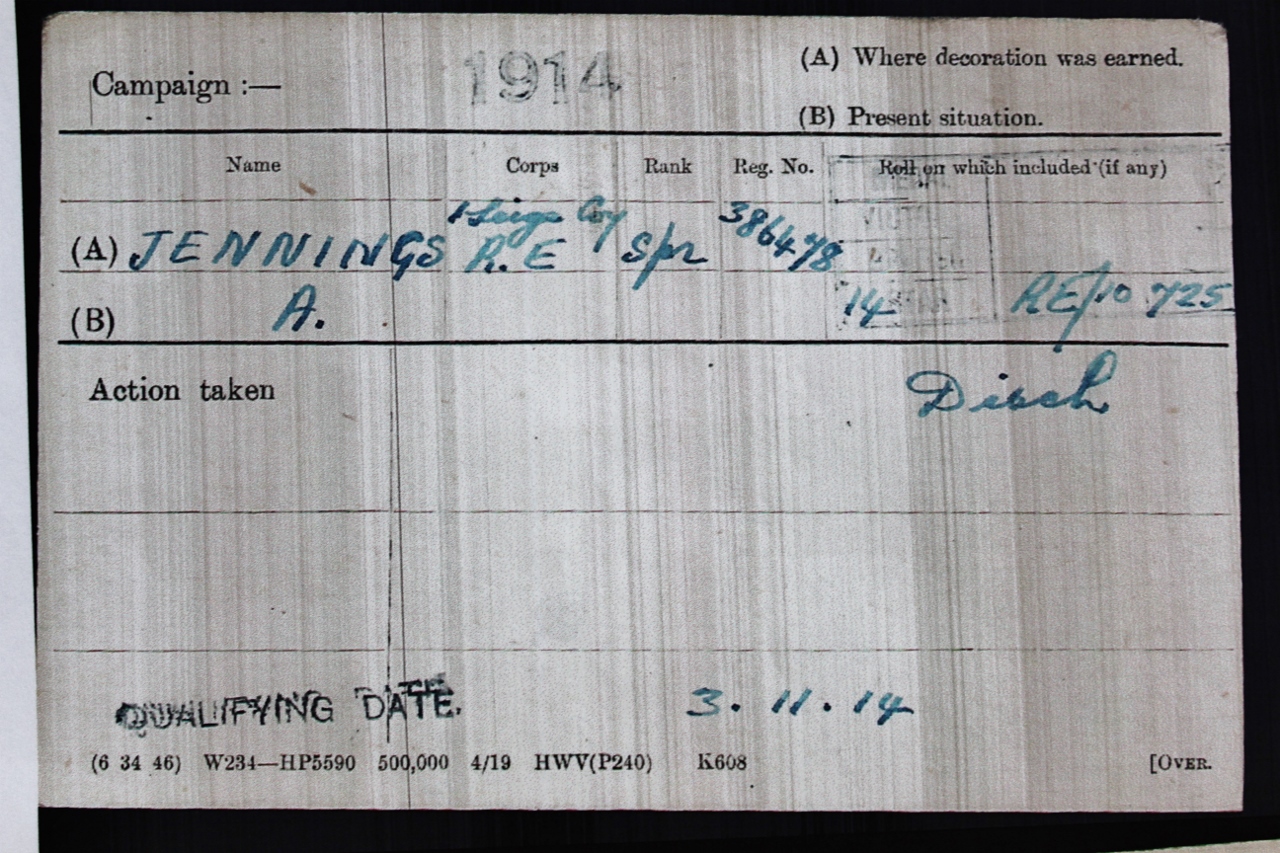 Campaign :— 1914 (A) Where decoration was earned.
(B) Present situation.
Name Corps Rank Reg. No. Roll on which included (if any)
1 Siege Coy
(A) JENNINGS R.E Spr 386478
(B) A. 14 RE/10 725
Action taken Disch
QUALIFYING DATE. 3.11.14
(6 34 46) W234—HP5590 500,000 4/19 HWV(P240) K608 [OVER.